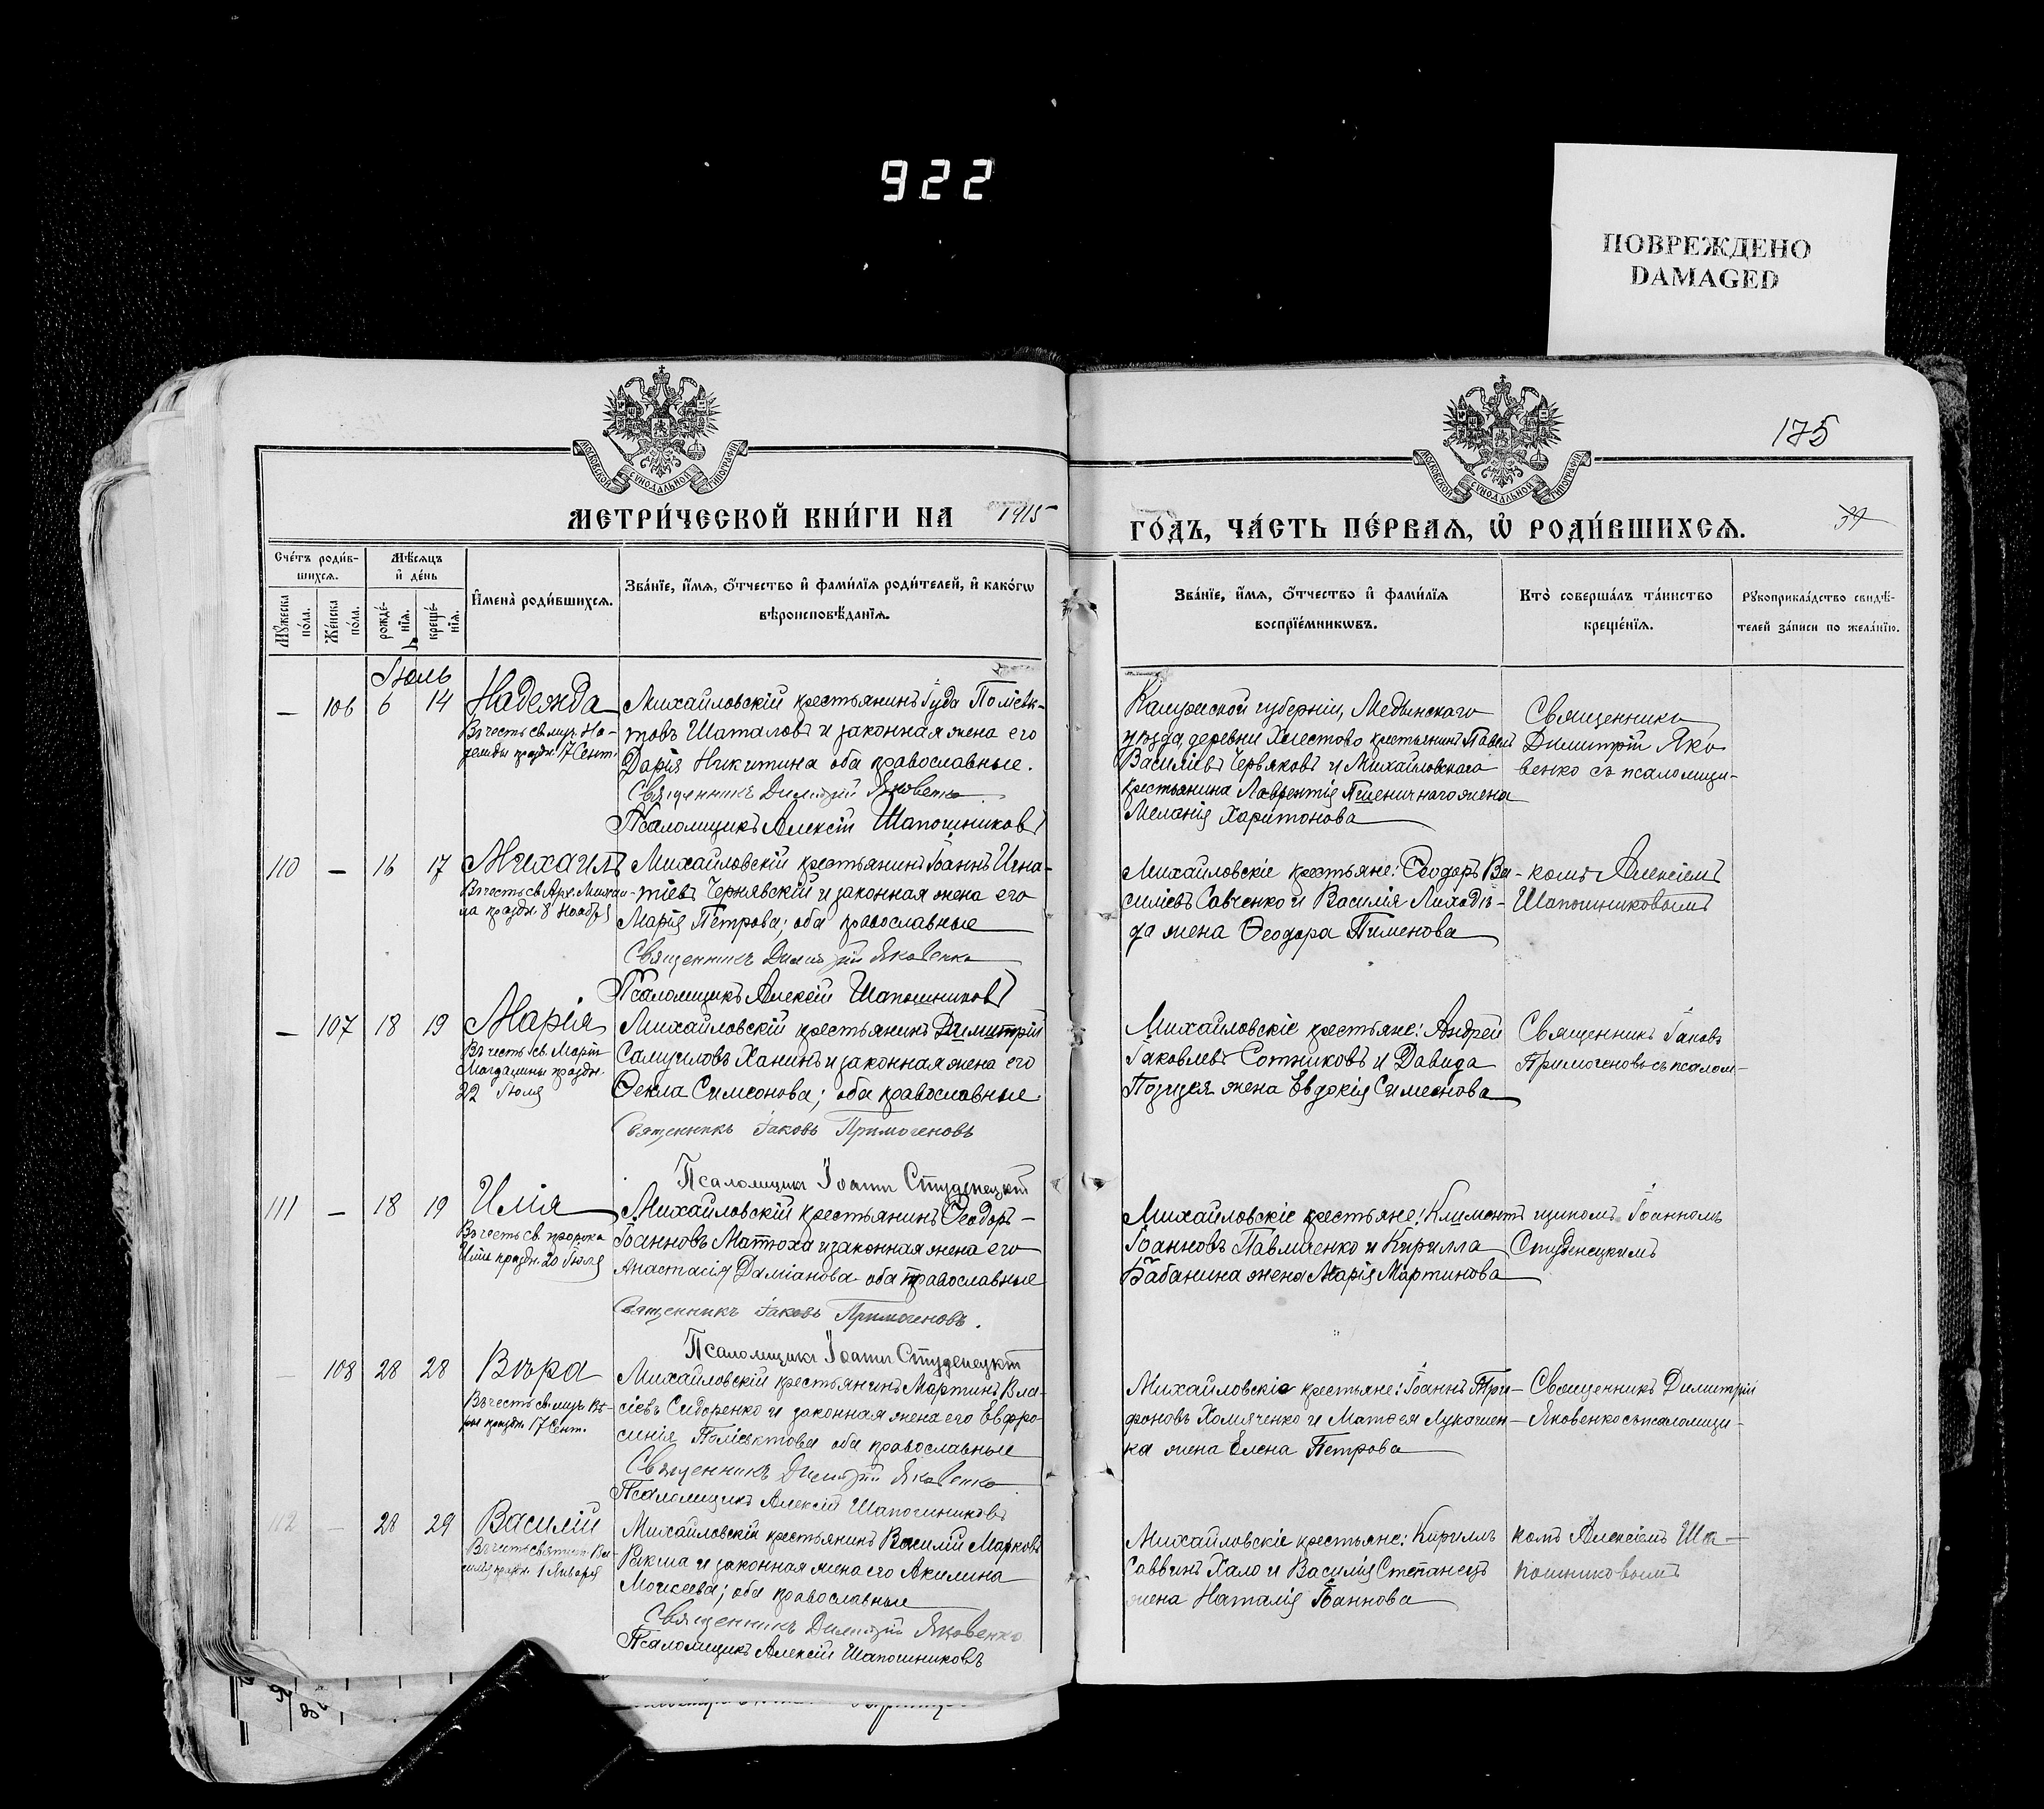 922
ПОВРЕЖДЕНО
DAMAGED
МОСКОВСКОЙ СѴНОДАЛЬНОЙ ТИПОГРАФІИ
МОСКОВСКОЙ СѴНОДАЛЬНОЙ ТИПОГРАФІИ
175
МЕТРИ́ЧЕСКОЙ КНИ́ГИ НА 1915
ГО́ДЪ, ЧА́СТЬ ПЕ́РВАЯ, Ѡ҆ РОДИ́ВШИХСЯ.
39
Сче́тъ роди́в-
шихся.
Мѣ́сяцъ
и҆ де́нь
Мꙋ́жеска
по́ла.
Же́нска
по́ла.
рожде́-
нїѧ.
креще́-
нїѧ.
И҆мена̀ роди́вшихся.
Зва́нїе, и҆́мя, о҆́тчество и҆ фами́лїя роди́телей, и҆ како́гѡ
вѣроисповѣ́данїя.
Зва́нїе, и҆́мя, о҆́тчество и҆ фами́лїя
воспрїе́мникѡвъ.
Кто̀ соверша́лъ та́инство
креще́нїя.
Рꙋкоприкла́дство свидѣ́-
телей за́писи по жела́нїю.
Іюль
— 106 6 14 Надежда
Въ честь св. муч. На-
дежды праздн. 17 Сент.
Михайловскій крестьянинъ Іуда Поліевк-
товъ Шаталовъ и законная жена его
Дарія Никитина оба православные.
Священникъ Димитрій Яковенко
Псаломщикъ Алексій Шапошниковъ
Калужской губерніи, Медынскаго
уѣзда, деревни Хлестово крестьянинъ Павелъ
Василіевъ Червяковъ и Михайловскаго
крестьянина Лаврентія Пшеничнаго жена
Меланія Харитонова
Священникъ
Димитрій Яко-
венко съ псаломщи-
110 — 16 17 Михаилъ
Въ честь св. Арх. Михаи-
ла праздн. 8 Ноября
Михайловскій крестьянинъ Іоаннъ Игна-
тіевъ Чернявскій и законная жена его
Марія Петрова; оба православные
Священникъ Димитрій Яковенко
Псаломщикъ Алексій Шапошниковъ
Михайловскіе крестьяне: Ѳеодоръ Ва-
силіевъ Савченко и Василія Лиходѣ-
да жена Ѳеодора Пименова
комъ Алексіемъ
Шапошниковымъ
— 107 18 19 Марія
Въ честь св. Маріи
Магдалины праздн.
22 Іюля
Михайловскій крестьянинъ Димитрій
Самуиловъ Ханинъ и законная жена его
Ѳекла Симеонова; оба православные
Священникъ Іаковъ Примогеновъ
Псаломщикъ Іоаннъ Студенецкій
Михайловскіе крестьяне: Андрей
Іаковлевъ Сотниковъ и Давида
жена Евдокія Симеонова
Священникъ Іаковъ
Примогеновъ съ псалом-
111 — 18 19 Илія
Въ честь св. пророка
Иліи праздн. 20 Іюля
Михайловскій крестьянинъ Ѳеодоръ
Іоанновъ Матюха и законная жена его
Анастасія Даміанова оба православные
Священникъ Іаковъ Примогеновъ.
Псаломщикъ Іоаннъ Студенецкій
Михайловскіе крестьяне: Климентъ
Іоанновъ Павличенко и Кирилла
Бабанина жена Марія Мартинова
щикомъ Іоанномъ
Студенецкимъ
— 108 28 28 Вѣра
Въ честь св. муч. Вѣ-
ры праздн. 17 Сент.
Михайловскій крестьянинъ Мартинъ Вла-
сіевъ Сидоренко и законная жена его Евфро-
синія Поліевктова оба православные
Священникъ Димитрій Яковенко
Псаломщикъ Алексій Шапошниковъ
Михайловскіе крестьяне: Іоаннъ Три-
фоновъ Хомяченко и Матѳея Лукашен-
ка жена Елена Петрова
Священникъ Димитрій
Яковенко съ псаломщи-
112 — 28 29 Василій
Въ честь святителя Ва-
силія праздн. 1 Января
Михайловскій крестьянинъ Василій Марковъ
Ракша и законная жена его Акилина
Моисеева; оба православные
Священникъ Димитрій Яковенко
Псаломщикъ Алексій Шапошниковъ
Михайловскіе крестьяне: Кириллъ
Саввинъ Хало и Василія Степанецъ
жена Наталія Іоаннова
комъ Алексіемъ Ша-
пошниковымъ